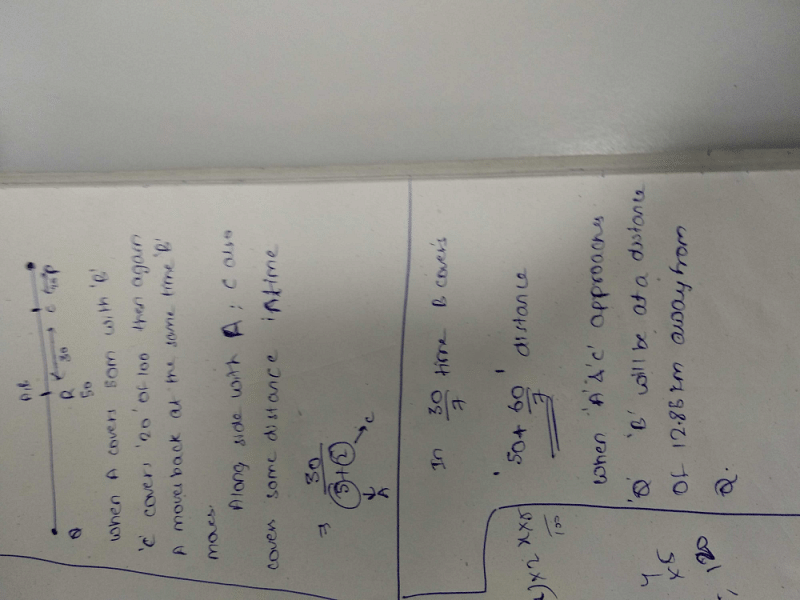 A,B
Q R C P
50 30 20
when A covers 50m with 'B'
'C' covers '20' of 100 then again
A moves back at the same time 'B'
moves
Along side with A ; C also
covers some distance in time
⇒ 30
5+2 → C
↓
A
In 30/7 time B covers
'50 + 60/7' distance
when 'A' & 'C' approaches
'Q' 'B' will be at a distance
of 12.86 km away from
Q.
)x2 x x5
100
4
x5
120